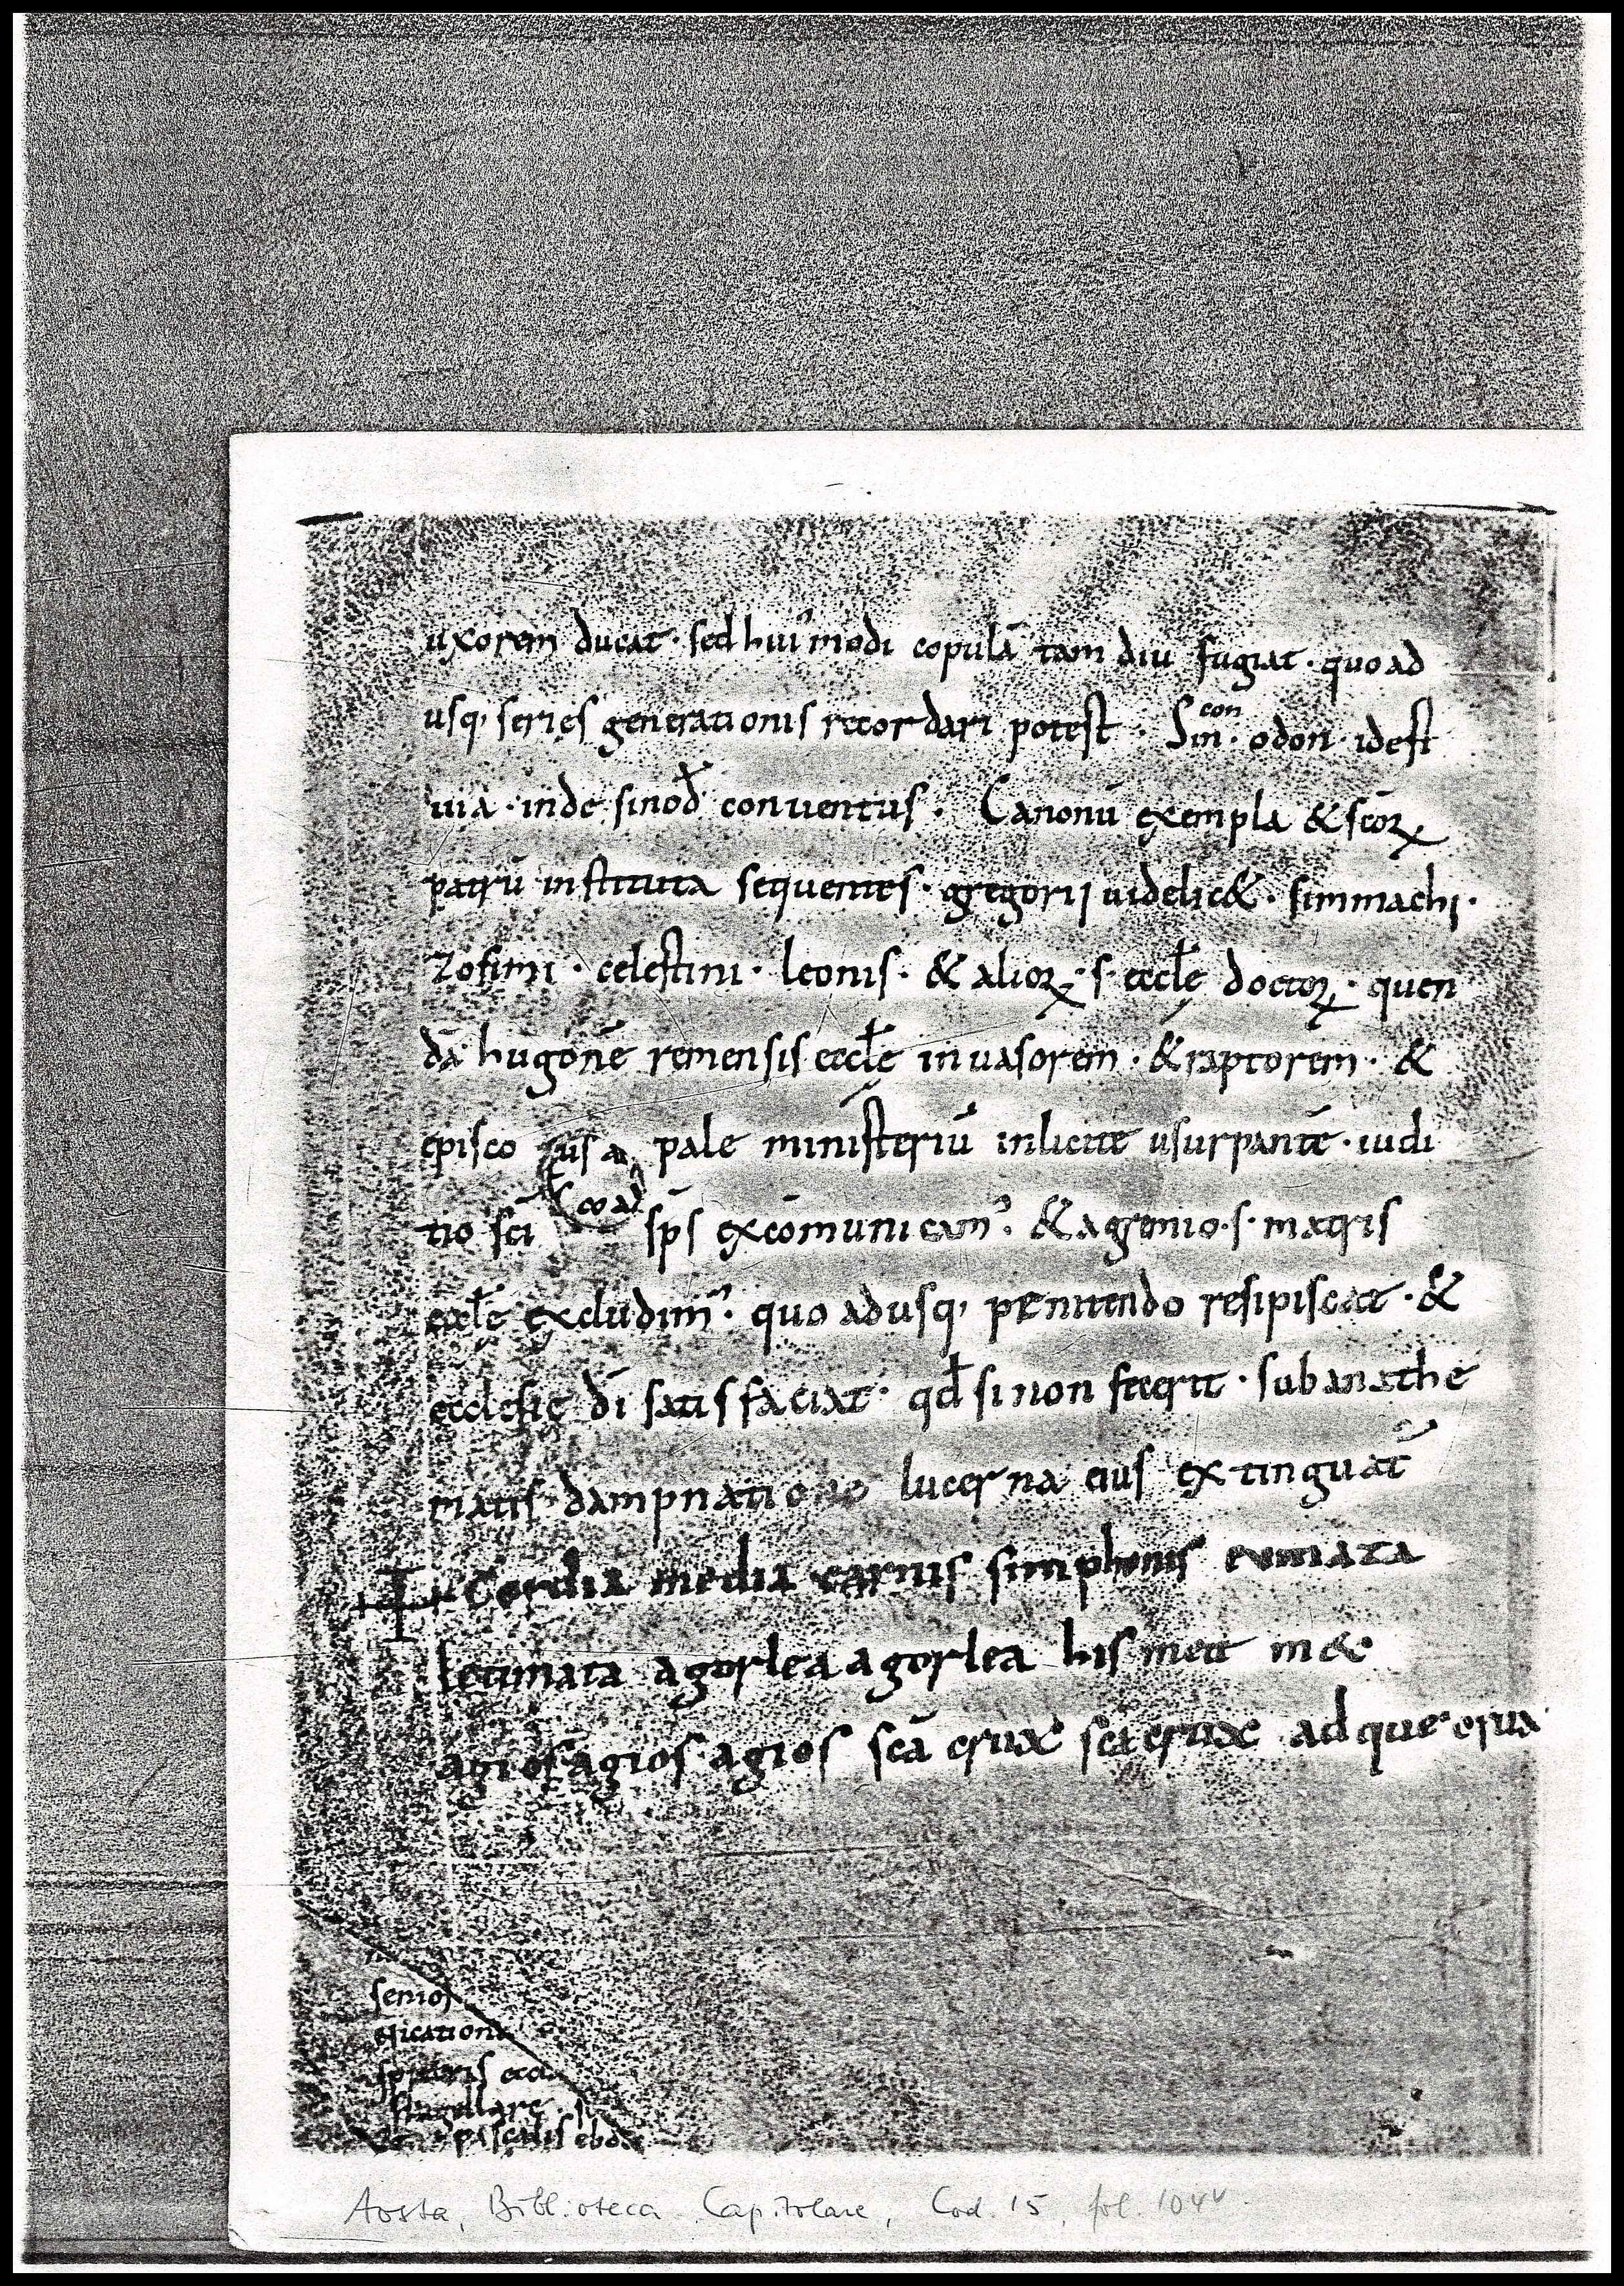 uxorem ducat · sed hui᾽modi copulā tam diu fugiat · quo ad
usq; series generationis recordari potest · Sin · odon · idest
con
uia · inde sinod conuentus · Canonū exempla & scōꝝ
patrū instituta sequentes · gregorij uidelic& · simmachi ·
Zosimi · celestini · leonis · & alioꝝ · s · eccłę doctoꝝ · quen
dā hugonē remensis eccłę inuasorem · & raptorem · &
episco pale ministeriū inlicite usurpantē · iudi
tio sci sps excōmunicam᾽ · & a gremio · s · matris
eccłę excludim᾽ · quo adusq; penitendo resipiscat · &
ecclesię dī satisfaciat · qđ si non fecerit · sub anathe
matis dampnatione lucerna eius extinguat᾽
Cordia media carnis simphonis
letimata agorlea agorlea his meti m&
agios agios agios scā crux scā crux adque crux
senior
spicatione
flagellare · si
pascalis ebdo
Aosta, Biblioteca Capitolare, Cod. 15, fol. 104v